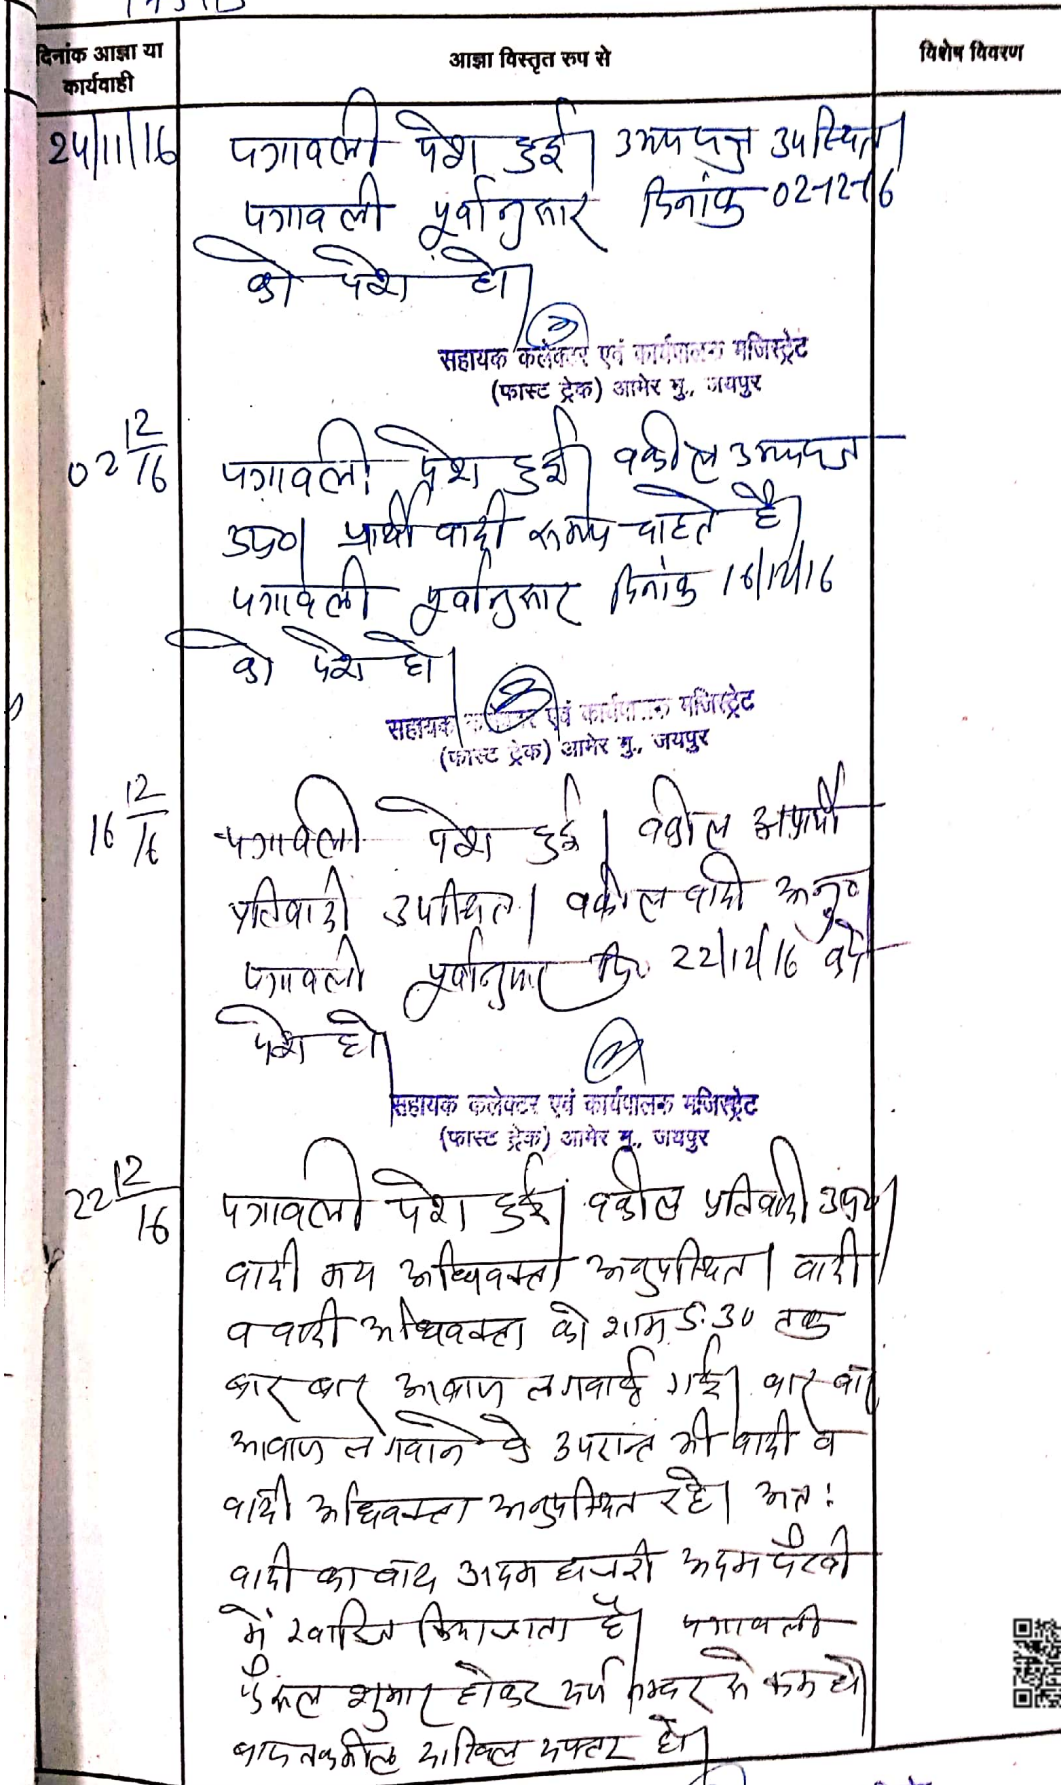 दिनांक आज्ञा या कार्यवाही
आज्ञा विस्तृत रूप से
विशेष विवरण
24/11/16
पत्रावली पेश हुई। उभयपक्ष उपस्थित।
पत्रावली पूर्वानुसार दिनांक 02-12-16
को पेश हो।
सहायक कलेक्टर एवं कार्यपालक मजिस्ट्रेट
(फास्ट ट्रेक) आमेर मु., जयपुर
02 12/16
पत्रावली पेश हुई। वकील उभयपक्ष
उप०। प्रार्थी वादी समय चाहते है।
पत्रावली पूर्वानुसार दिनांक 16/12/16
को पेश हो।
सहायक कलेक्टर एवं कार्यपालक मजिस्ट्रेट
(फास्ट ट्रेक) आमेर मु., जयपुर
16 12/16
पत्रावली पेश हुई। वकील अप्रार्थी
प्रतिवादी उपस्थित। वकील वादी अनु०
पत्रावली पूर्वानुसार दि० 22/12/16 को
पेश हो।
सहायक कलेक्टर एवं कार्यपालक मजिस्ट्रेट
(फास्ट ट्रेक) आमेर मु., जयपुर
22 12/16
पत्रावली पेश हुई। वकील प्रतिवादी
वादी मय अधिवक्ता अनुपस्थित। वादी
व वादी अधिवक्ता को शाम 5:30 तक
बार बार आवाज लगवाई गई। बार बार
आवाज लगवाने के उपरान्त भी वादी व
वादी अधिवक्ता अनुपस्थित रहे। अत:
वादी का वाद अदम हाजरी अदम पैरवी
में खारिज किया जाता है। पत्रावली
फैसल शुमार होकर दर्ज नम्बर से कम हो।
बाद तकमील दाखिल दफ्तर हो।